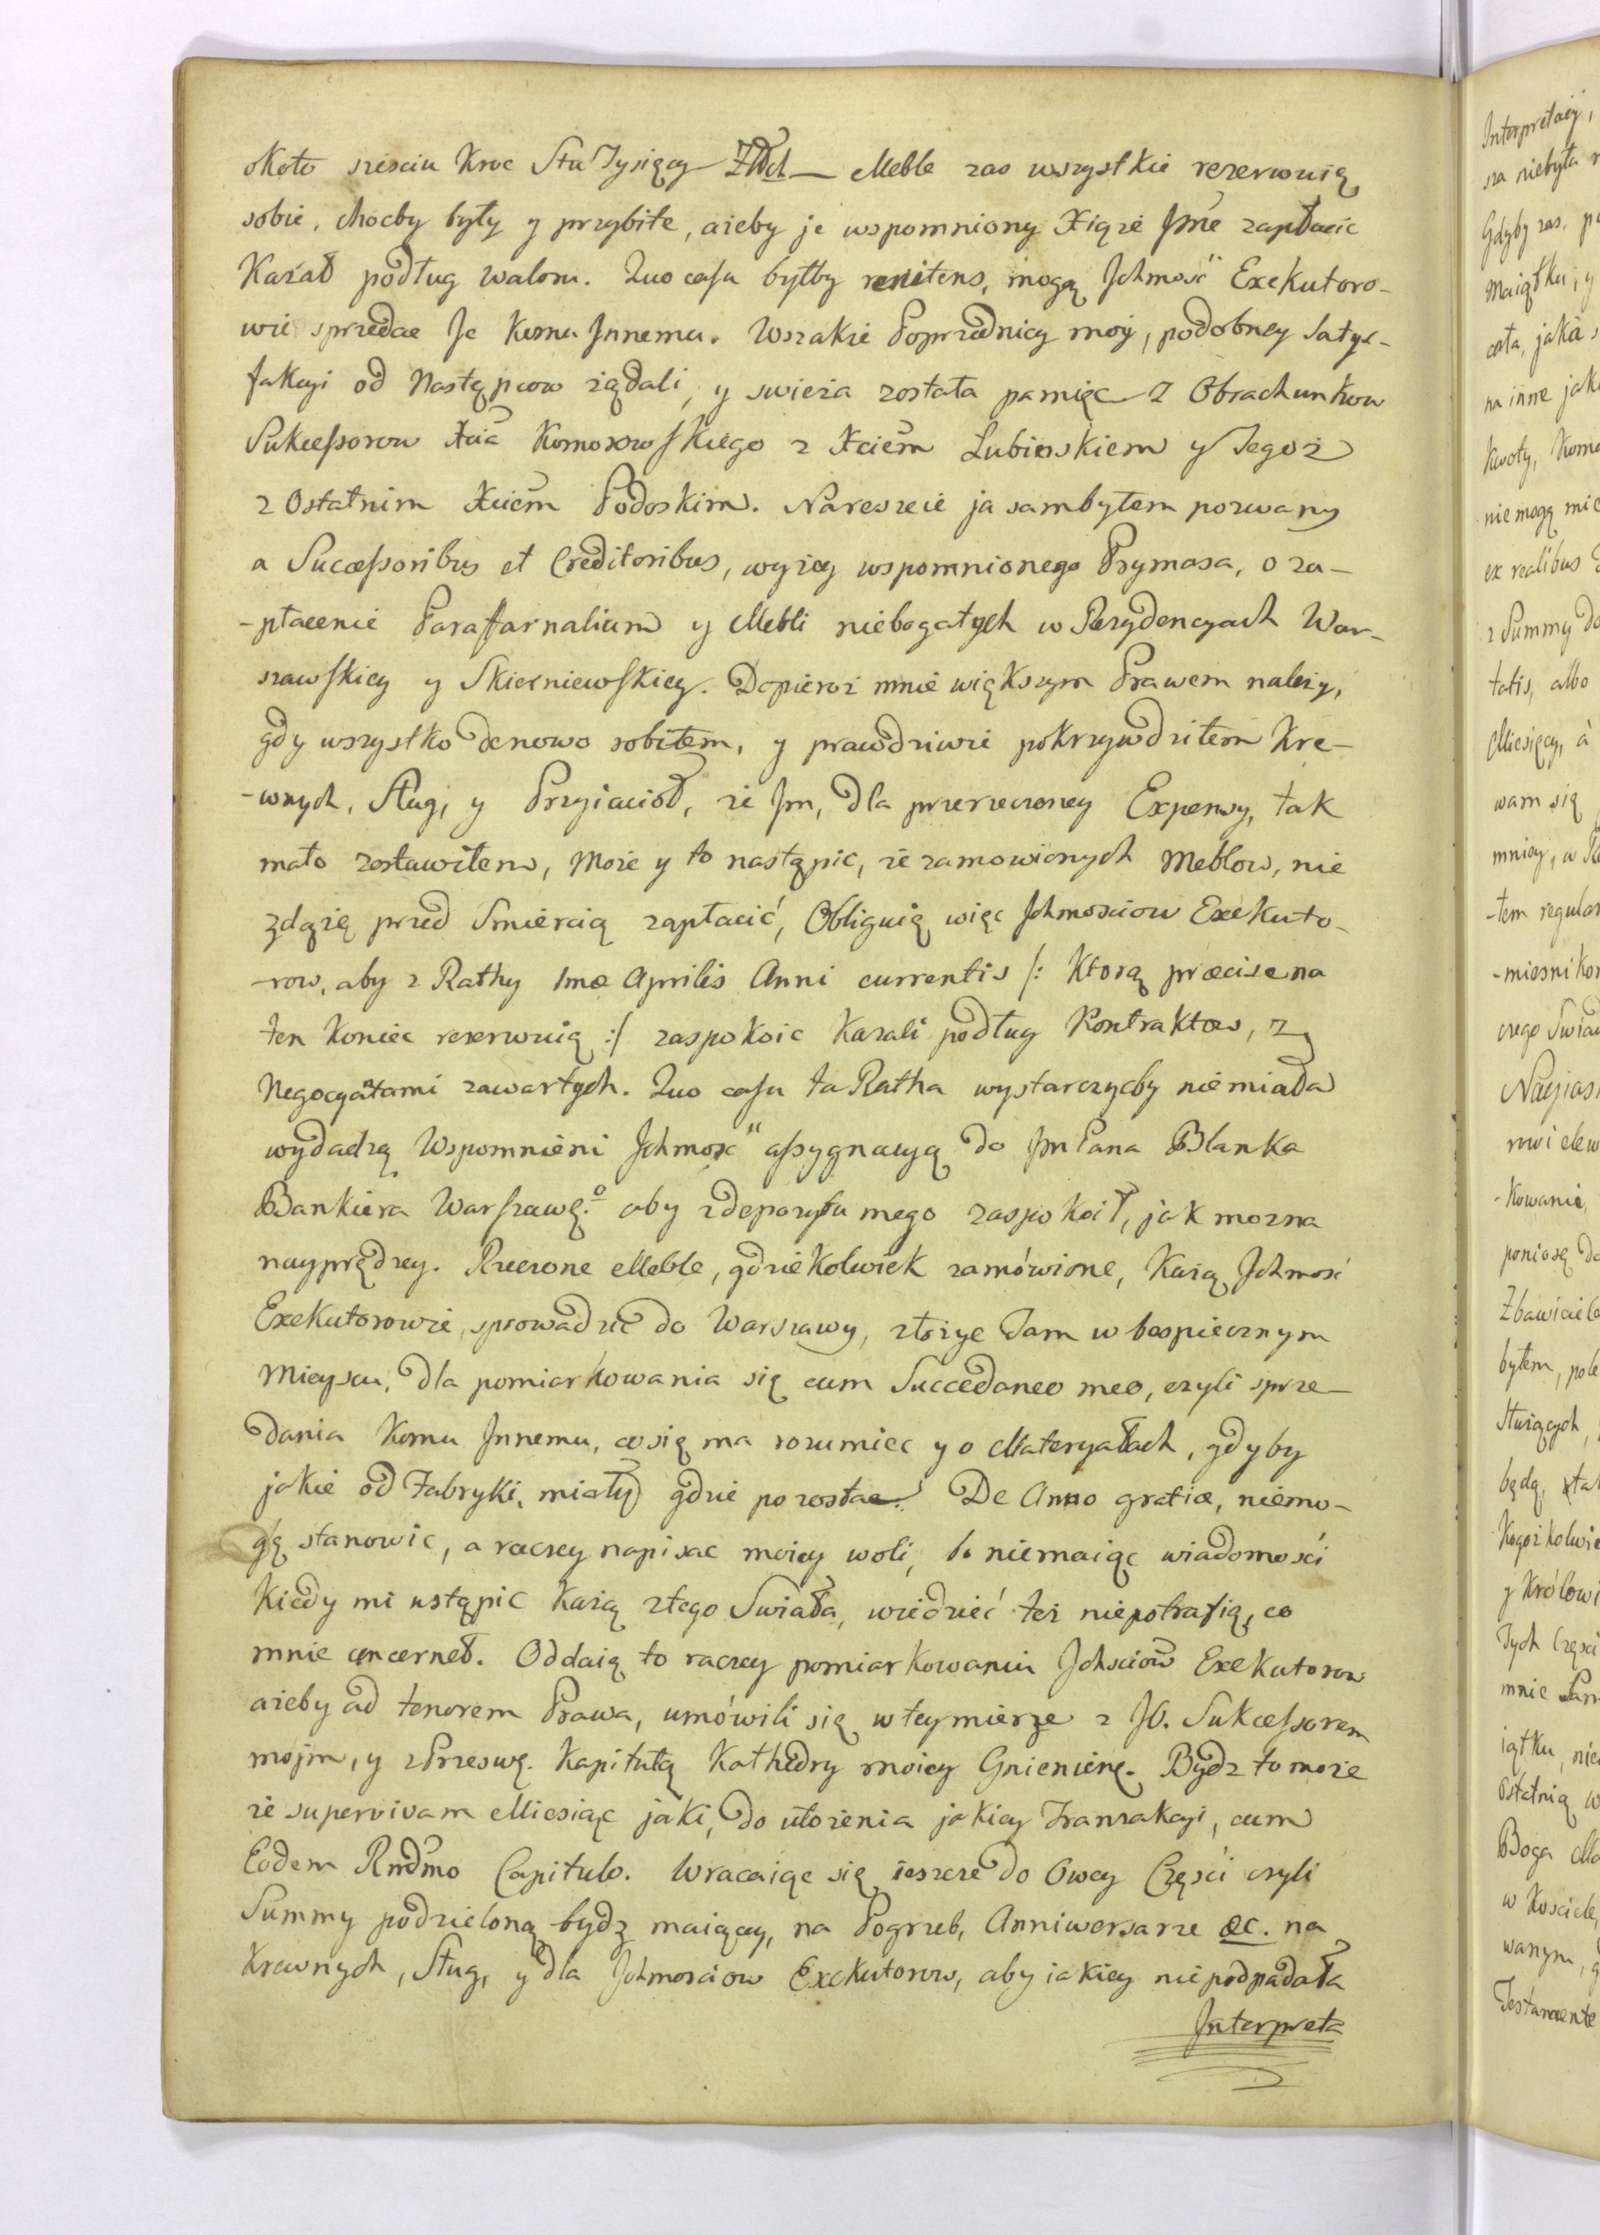 około sześciu Kroc Stu Tysięcy Złłch — Meble zas wszystkie rezerwuię
sobie, choćby były y przybite, ażeby je wspomniony Xiąże Jme zapłacic
Kazał podług waloru. Quo casu byłby renitens, mogą Ichmość Exekutoro-
wie sprzedac Je Komu Innemu. Wszakże Poprzednicy moy, podobney Satys-
fakcyi od Następcow żądali, y swieża została pamięc z Obrachunkow
Sukcessorow Xcia Komorowskiego z Xciem Lubienskiem y Tegoż
z Ostatnim Xciem Podoskim. Nareszcie ja sam byłem pozwany
a Sucæssoribus et Creditoribus, wyżey wspomnionego Prymasa, o za-
-płacenie Paraffarnalium y Mebli niebogatych w Rezydencyach War-
szawskiey y Skierniewskiey. Dopieroż mnie większym Prawem należy,
gdy wszystko denowo robiłem, y prawdziwie pokrzywdziłem Kre-
-wnych, Sług, y Przyiacioł, że Im, dla przerzeczoney Expensy, tak
mało zostawiłem, Może y to nastąpic, że zamowionych Meblow, nie
zdążę przed Smiercią zapłacić, Obliguię więc Ichmosciow Exekuto-
-row, aby z Rathy 1mæ Aprilis Anni currentis /: Ktorą præcise na
ten Koniec rezerwuię :/ zaspokoic Kazali podług Kontraktow, z
Negocyantami zawartych. Quo casu ta Ratha wystarczyćby niemiała
wydadzą Wspomnieni Ichmość assygnacyą do Jm Pana Blanka
Bankiera Warszawę.º aby zdepozytu mego zaspokoił, jak można
nayprędzey. Rzeczone Meble, gdziekolwiek zamówione, Każą Ichmość
Exekutorowie, sprowadzić do Warszawy, złożyc Tam w bespiecznym
Mieyscu, dla pomiarkowania się cum Succedaneo meo, czyli sprze-
dania Komu Innemu, co się ma rozumiec y o Materyałach, gdyby
jakie od Fabryki, miały gdzie pozostac. De Anno gratiæ, niemo-
gę stanowic, a raczey napisac moiey woli, bo niemaiąc wiadomości
Kiedy mi ustąpic Każą ztego Swiata, wiedzieć też niepotrafię, co
mnie cencerneb. Oddaię to raczey pomiarkowaniu Ichsciow Exekutorow
ażeby ad tenorem Prawa, umówili się wteymierze z JO. Sukcessorem
mojm, y z Przeswę. Kapitułą Kathedry moiey Gnienienę. Bydz to może
że supervivam Miesiąc jaki, do ułożenia jakiey Tranzakcyi, cum
Eodem Rndmo Capitulo. Wracaiąc się ieszcze do Owey Części czyli
Summy podzieloną bydz maiącey, na Pogrzeb, Anniwersarze &c. na
Krewnych, Sług, y dla Ichmosciow Exekutorow, aby iakiey niepodpadała
Interpreta
Interpretacyi,
sza niebyła
Gdyby zas,
Maiątku, y
cota, jaka
na inne
Kwoty,
nie mogą
ex realibus
z Summy
tatis, albo
Miesięcy, à
wam się
mniey, w
-tem
czego
-Kowanie,
poniosę
Zbawiciela
byłem,
Służących,
będą,
y
Tych Części
mnie
iątku,
Ostatnią
Boga
w Kościele,
wanym,